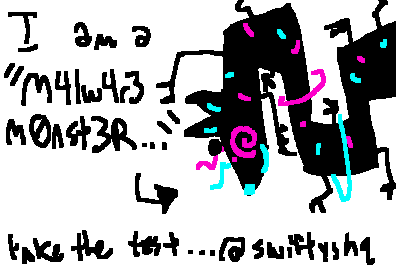 I am a
"M4lw4r3
m0nst3R..."
take the test...@swiftyshq